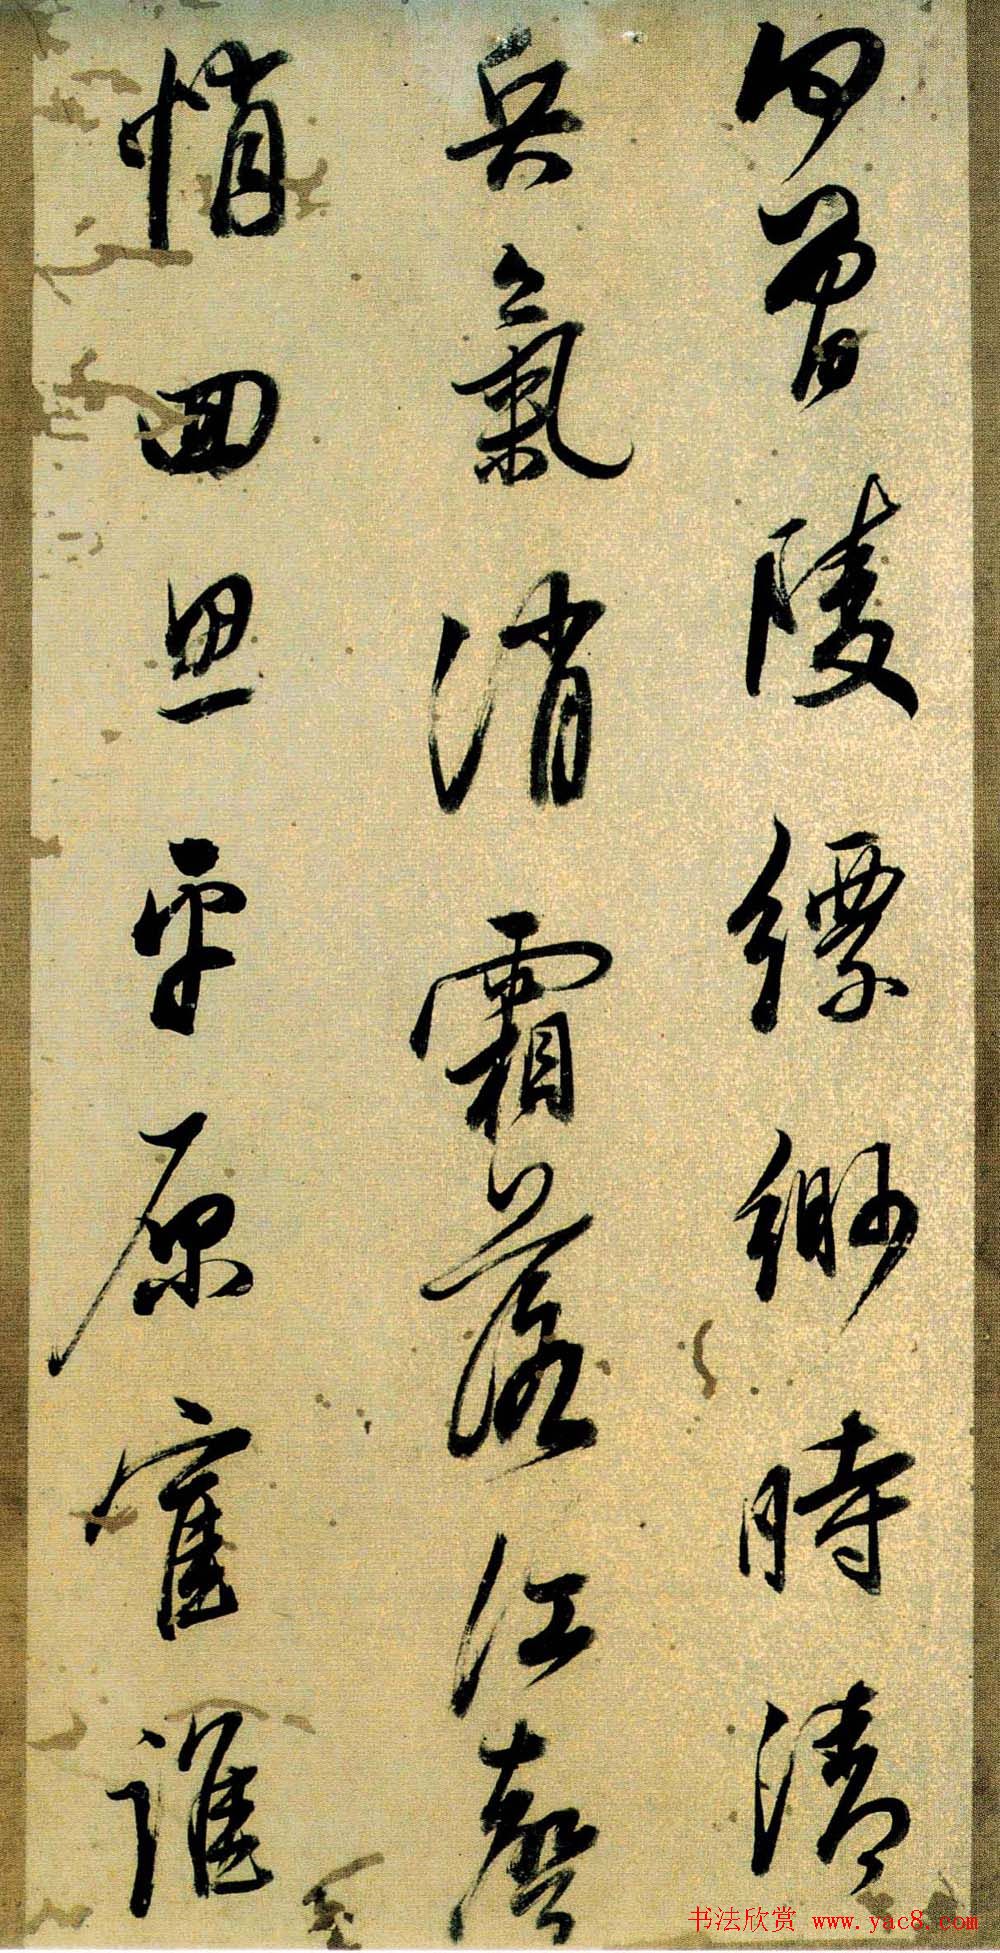 何曾陵縹緲時清
兵氣消霜落江聲
悄回思平原舊誰
书法欣赏 www.yac8.com